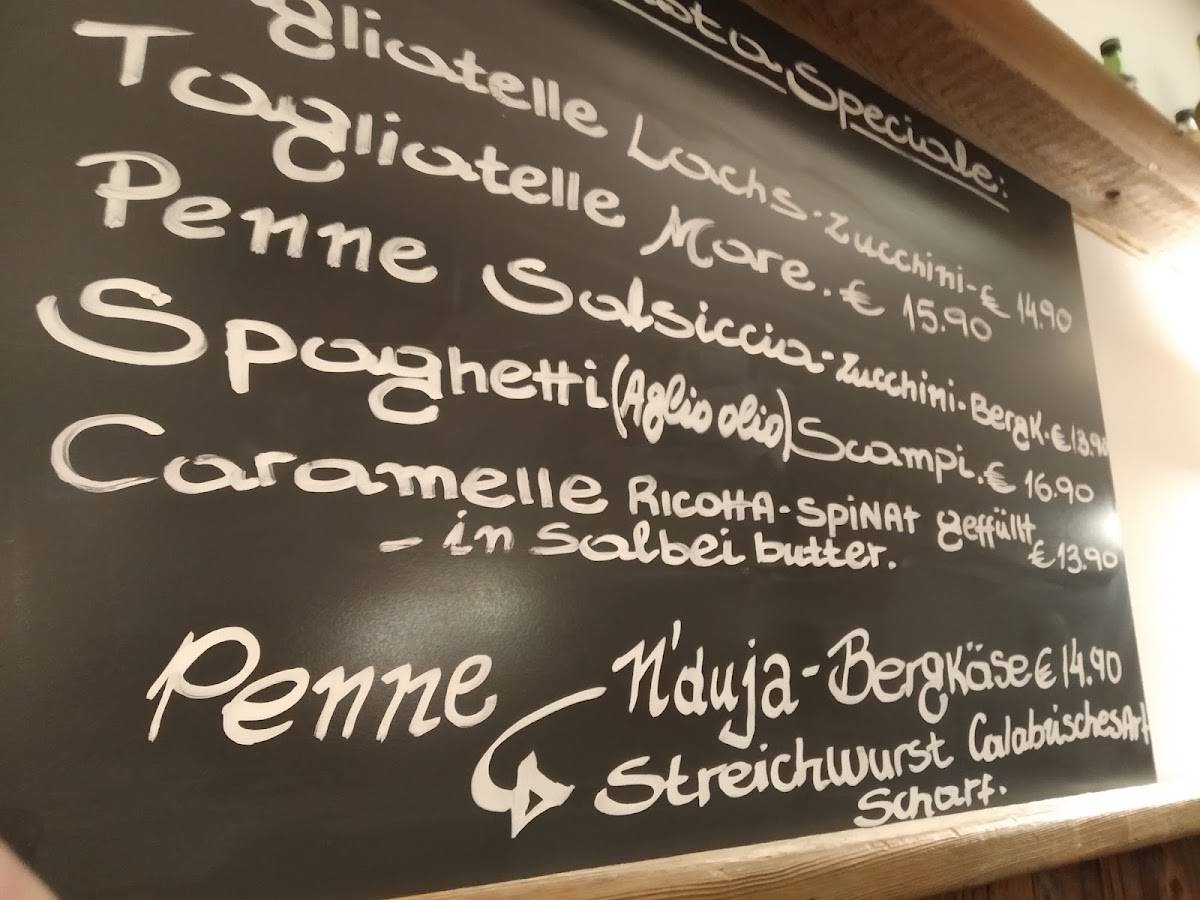 Speciale:
gliatelle Lachs-Zucchini-€ 14.90
Tagliatelle Mare. € 15.90
Penne Salsiccia-Zucchini-BergK.€13.90
Spaghetti (Aglio olio) Scampi.€ 16.90
Caramelle Ricotta-Spinat geffüllt
- in Salbei butter. €13.90
Penne N'duja-Bergkäse € 14.90
Streichwurst CalabrischesArt
Scharf.